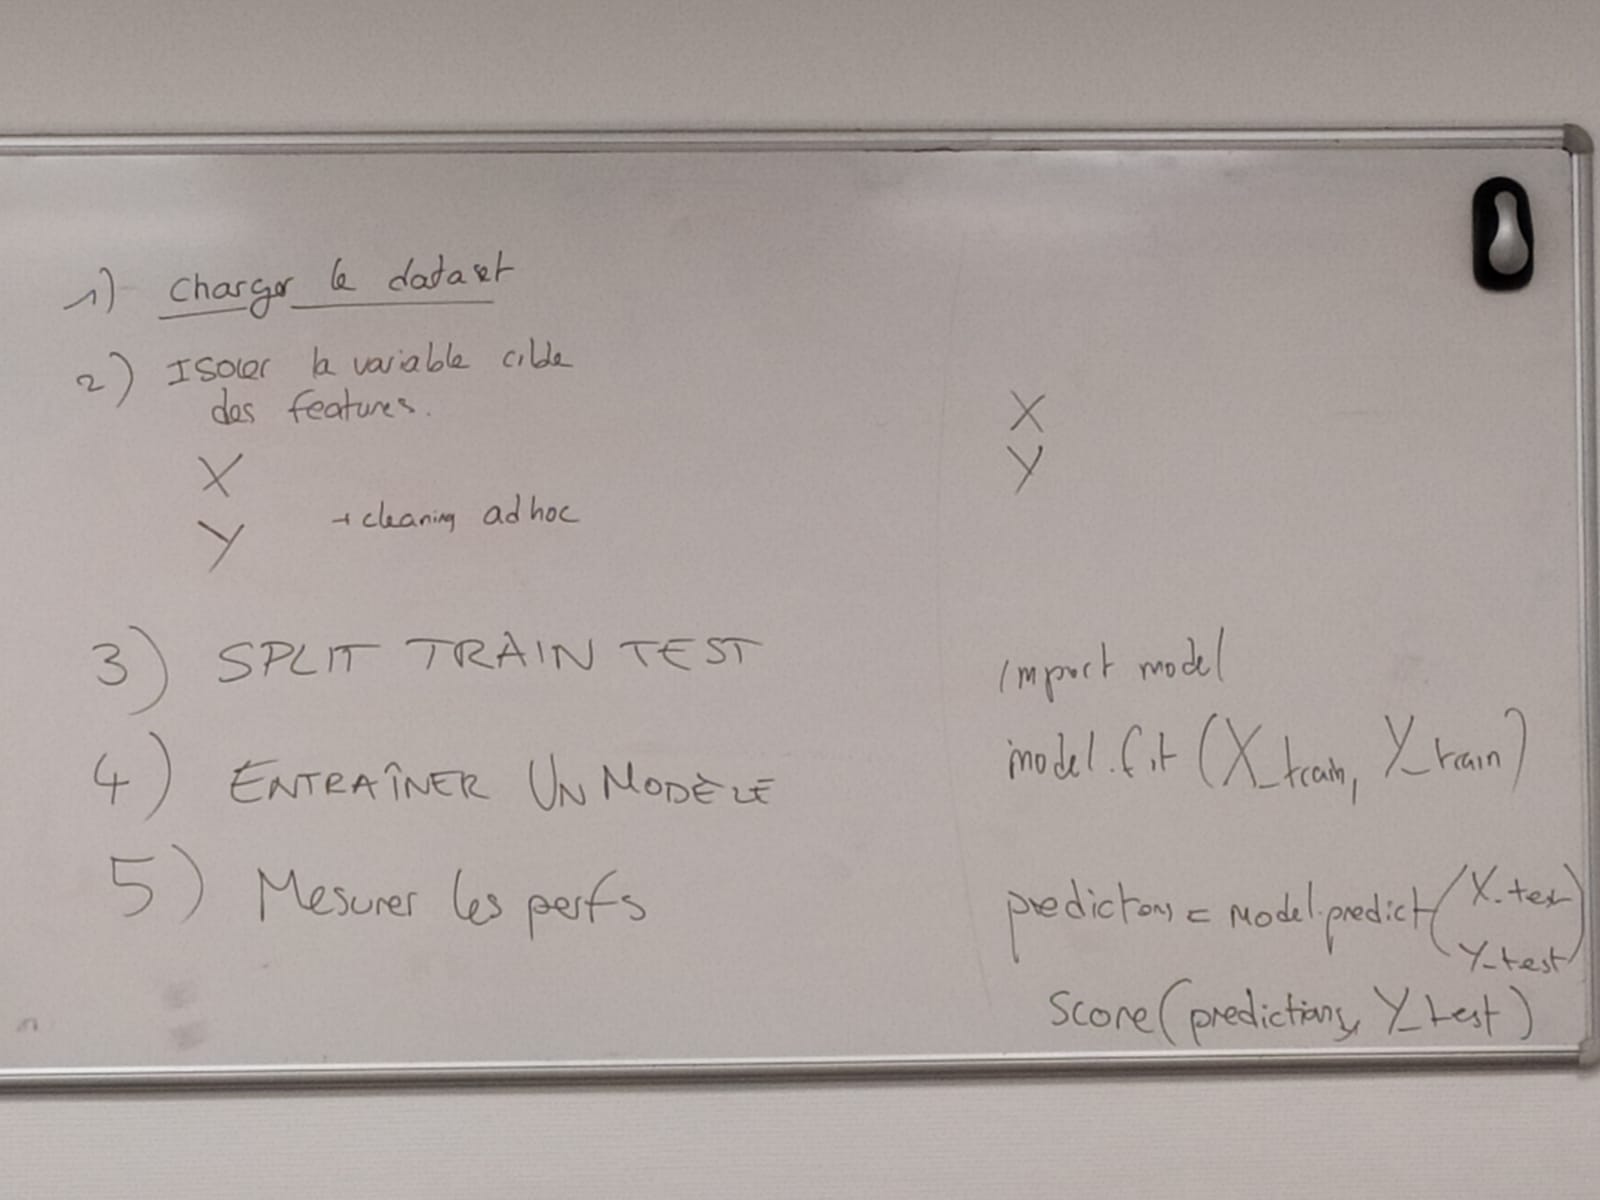 1) Charger le dataset
2) Isoler la variable cible
des features.
X
Y
+ cleaning adhoc
3) SPLIT TRAIN TEST
4) ENTRAÎNER UN MODÈLE
5) Mesurer les perfs
X
Y
import model
model.fit (X_train, Y_train)
predictions = model.predict (X_test
Y_test)
score(predictions, Y_test)